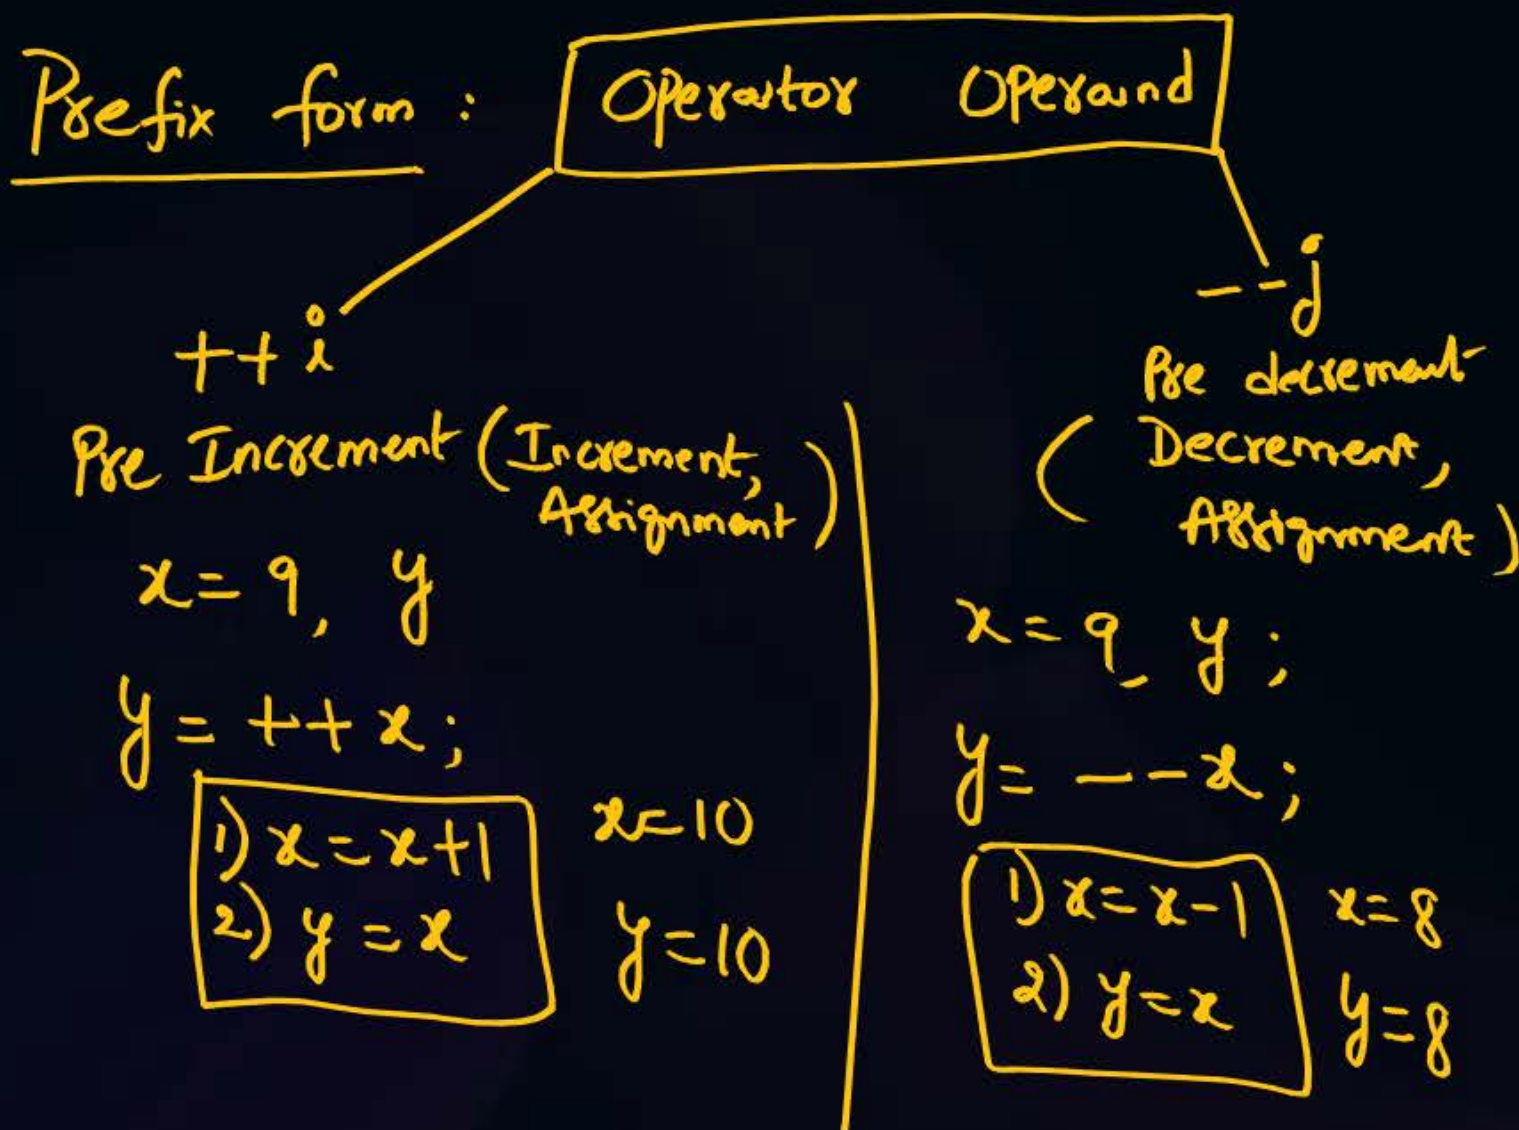 Prefix form : Operator Operand
++i
Pre Increment (Increment, Assignment)
x = 9, y
y = ++x;
1) x = x+1
2) y = x
x = 10
y = 10
--j
Pre decrement
(Decrement,
Assignment)
x = 9, y ;
y = --x;
1) x = x-1
2) y = x
x = 8
y = 8